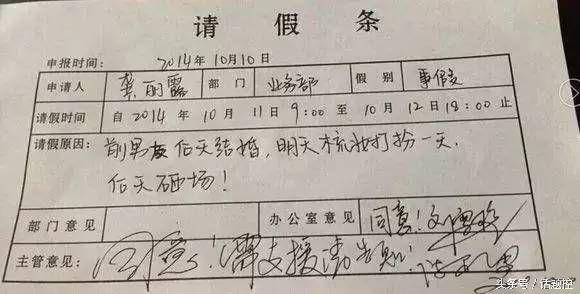 请假条
申报时间: 2014年10月10日
申请人 龚丽露 部门 业务部 假别 事假
请假时间 自2014年10月11日9:00至10月12日18:00止
请假原因: 前男友后天结婚,明天梳妆打扮一天.
后天砸场!
部门意见 办公室意见 同意!
主管意见: 同意!需支援请告知!
头条号 / 话题图